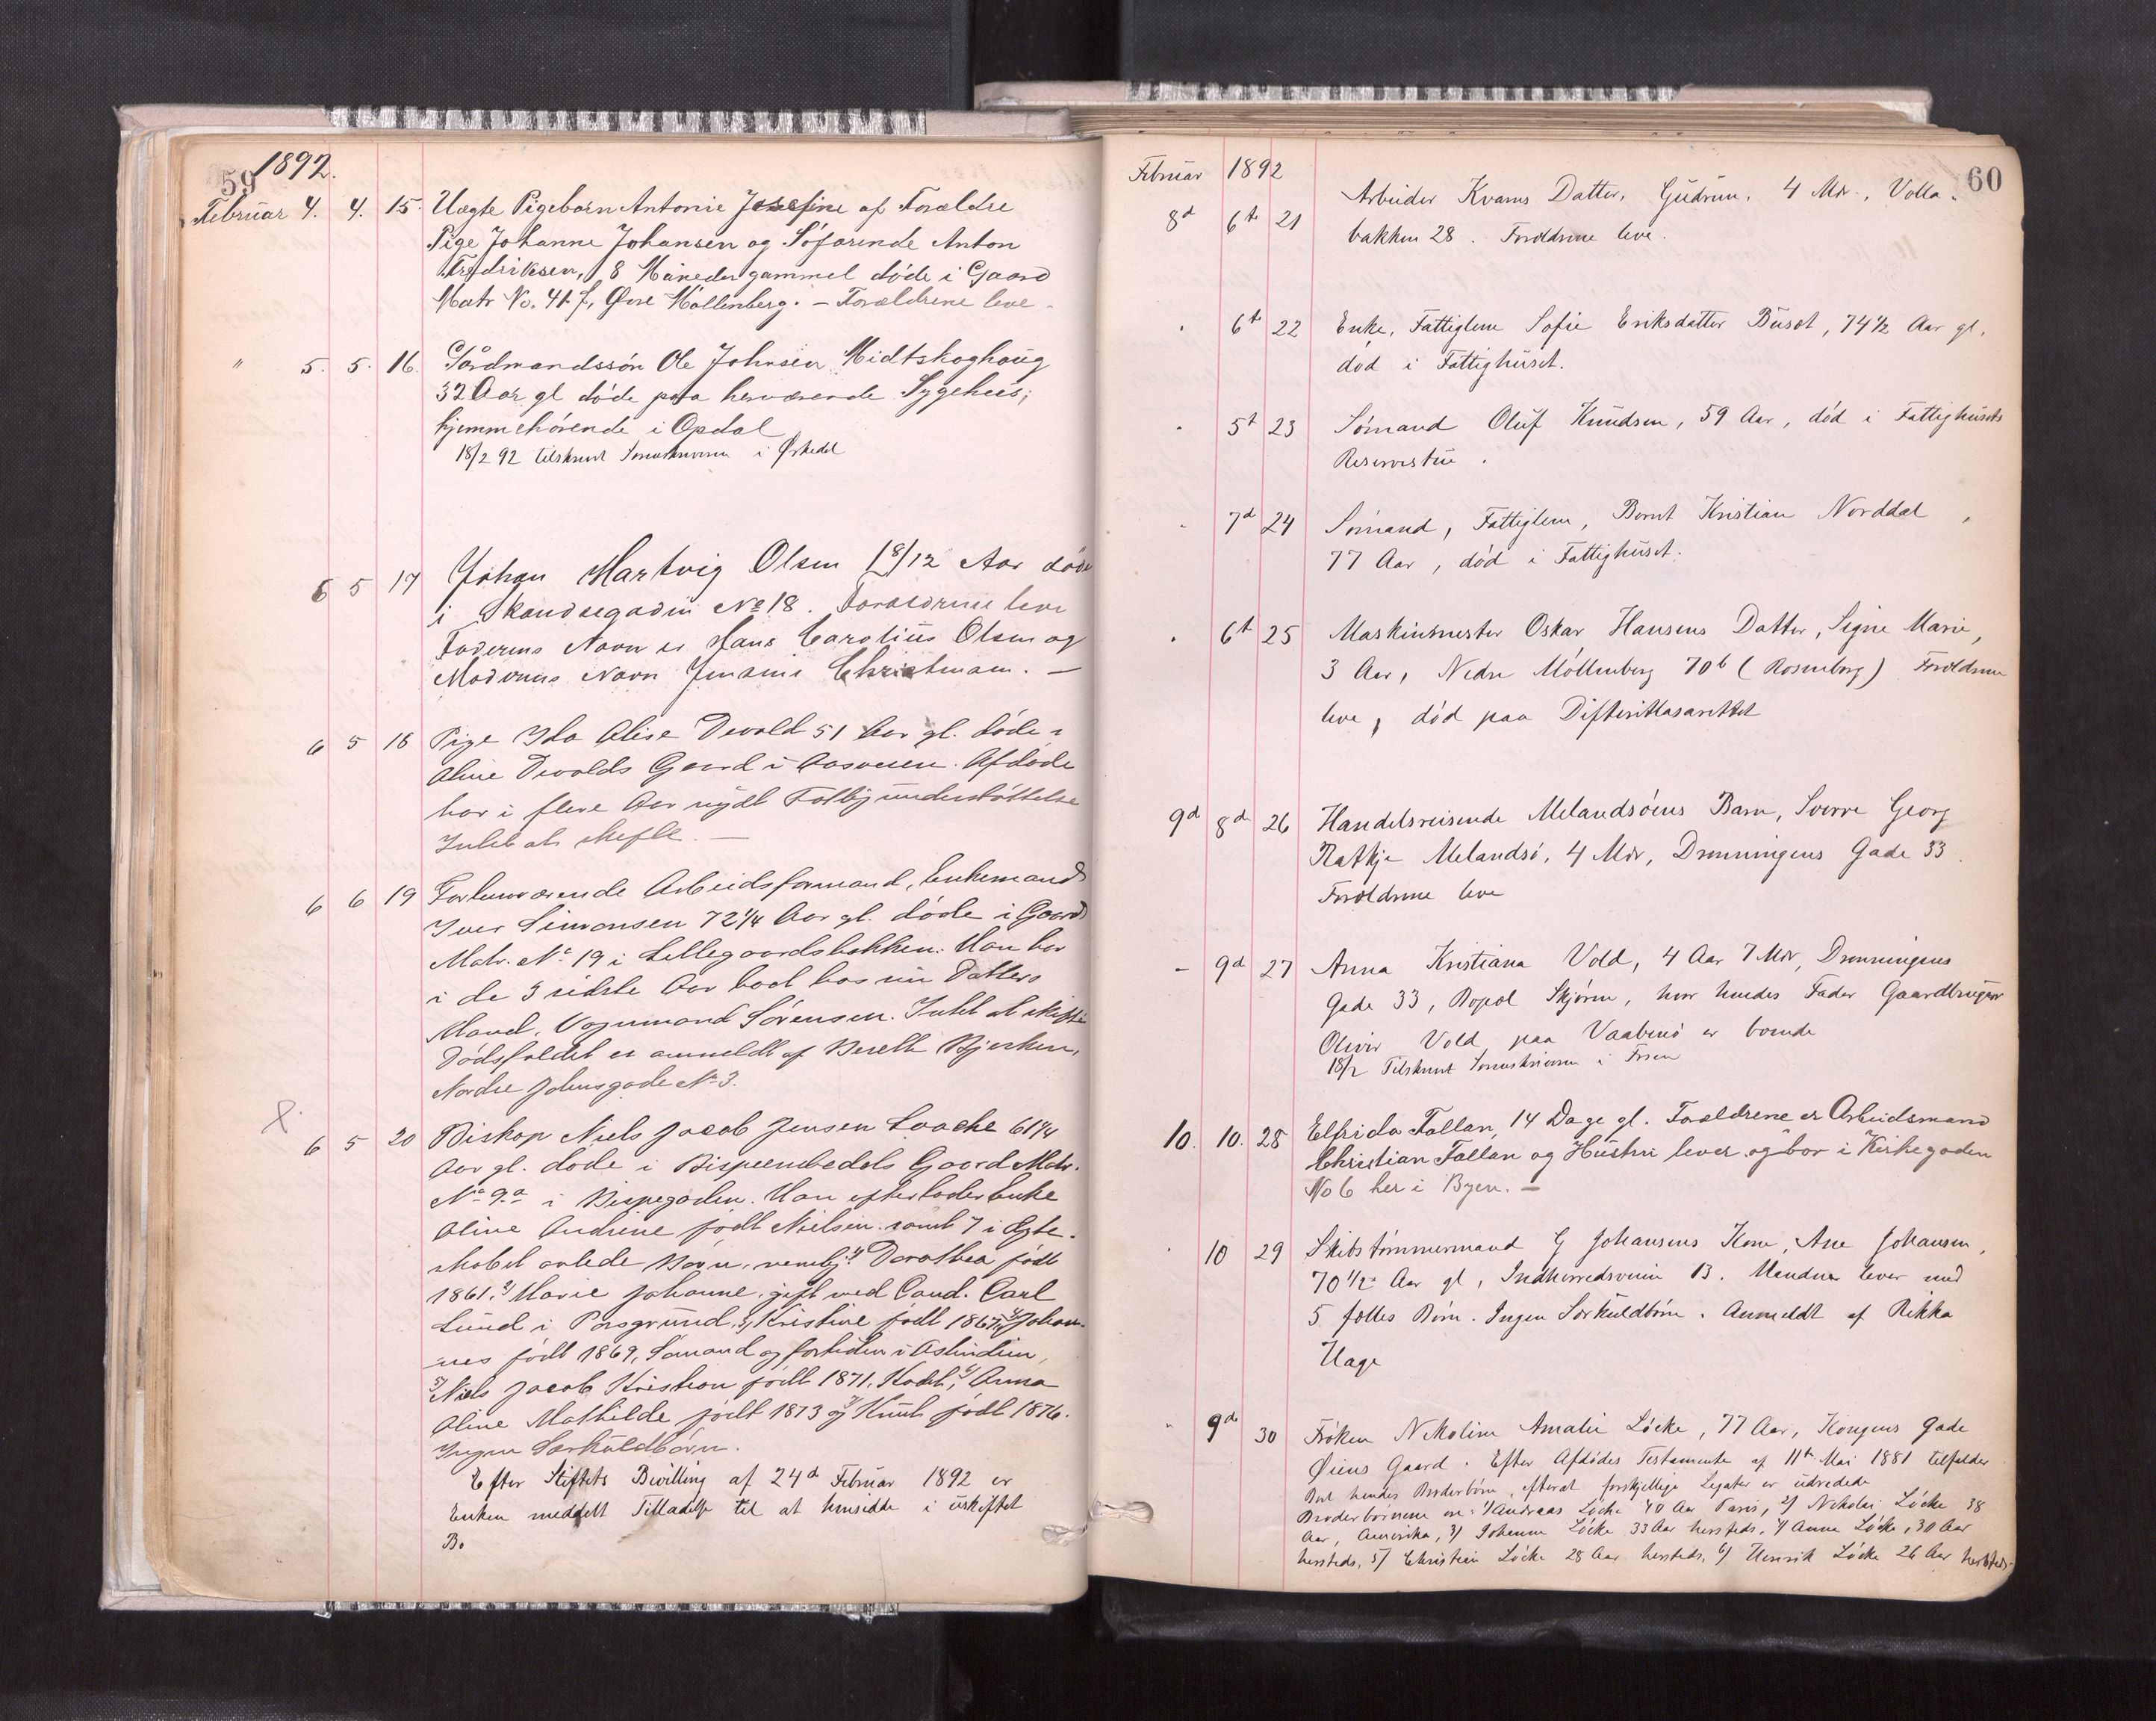 59 1892.
Februar 4. 4. 15. Uægte Pigebarn Antonie Josefine af Forældre
Pige Johanne Johansen og Söfarende Anton
Fredriksen, 8 Maaneder gammel döde i Gaard
Matr No. 41.f, Øvre Möllenberg. – Forældrene leve.
" 5. 5. 16. Gårdmandssön Ole Johnsen Midtskoghaug
32 Aar gl döde paa herværende Sygehus;
hjemmehörende i Opdal
18/2 92 tilskrevet Sorenskriveren i Ørkedal
6 5 17 Johan Hartvig Olsen 1 8/12 Aar döde
i Skandsegaden No 18. Forældrene leve
Faderens Navn er Hans Carolius Olsen og
Moderens Navn Christmann. –
6 5 18 Pige Ida Elise Devold 51 Aar gl. döde i
Aline Devolds Gaard i Aasveien. Afdöde
har i flere Aar nydt Fattigunderstöttelse
Intet at skifte. –
6 6 19 Forhenværende Arbeidsformand, Enkemand
Iver Simonsen 72 1/4 Aar gl. döde i Gaard
Matr. No 19 i Lillegaardsbakken. Han har
i de 3 sidste Aar boet hos sin Datters
Mand, Vognmand Sörensen. Intet at skifte
Dödsfaldet er anmeldt af Bereth Bjerken,
Nordre No 3.
6 5 20 Biskop Niels Jacob Jensen Laache 61 1/4
Aar gl. döde i Bispeembedets Gaard Matr.
No 9.a i Bispegaden. Han efterlader Enke
Aline Andrine födt Nielsen samt 7 i Ægte-
skabet avlede Börn, nemlig 1) Dorothea födt
1861, 2) Marie Johanne, gift med Cand. Carl
Lund i Porsgrund, 3) Kristine födt 1867, 4) Johan-
nes födt 1869, Sömand og fortiden i Ostindien,
5) Niels Jacob Kristian födt 1871, Kadet, 6) Anna
Aline Mathilde födt 1873 og 7) Knut födt 1876.
Ingen Særkuldbörn.
Efter Stiftets Bevilling af 24d Februar 1892 er
Enken meddelt Tilladelse til at hensidde i uskiftet
Bo
Februar 1892 60
8d 6t 21 Arbeider Kvams Datter, Gudrun, 4 Mdr., Volla-
bakken 28. Forældrene leve.
" 6t 22 Enke, Fattiglem Sofie Eriksdatter Buset, 74 1/2 Aar gl,
död i Fattighuset.
" 5t 23 Sömand Oluf Knudsen, 59 Aar, död i Fattighusets
Reservestue.
" 7d 24 Sömand, Fattiglem, Bernt Kristian Norddal,
77 Aar, död i Fattighuset.
" 6t 25 Maskinmester Oskar Hansens Datter, Signe Marie,
3 Aar, Nedre Möllenberg 70b (Rosenborg) Forældrene
leve, död paa Difteritlasarettet
9d 8d 26 Handelsreisende Melandsöens Barn, Sverre Georg
Melandsö, 4 Mdr, Dronningens Gade 33.
Forældrene leve
– 9d 27 Anna Kristiana Vold, 4 Aar 7 Mdr, Dronningens
Gade 33, Bopæl Skjörn, hvor hendes Fader Gaardbruger
Oliver Vold paa er boende
18/2 Tilskrevet Sorenskriveren i Fosen
10. 10. 28 Elfrida Fallan, 14 Dage gl. Forældrene er Arbeidsmand
Christian Fallan og Hustru lever og bor i Kirkegaden
No 6 her i Byen. –
" 10 29 Skibstömmermand G Johansens Kone, Ane Johansen,
70 1/2 Aar gl, Indherredsveien 13. Manden lever med
5 fælles Börn. Ingen Særkuldbörn. Anmeldt af Rikka
Hage
" 9de 30 Fröken Nikoline Amalie Löcke, 77 Aar, Kongens Gade
Øiens Gaard. Efter Afdödes Testamente af 11te Mai 1881 tilfalder
Boet hendes Broderbörn, efterat forskjellige Legater er udredede
Broderbörnene ere: 1) Andreas Löcke 40 Aar Paris, 2) Nikolai Löcke 38
Aar, Amerika, 3) Johanne Löcke 33 Aar hersteds, 4) Anna Löcke, 30 Aar
hersteds, 5) Christian Löcke 28 Aar hersteds, 6) Henrik Löcke 26 Aar hersteds.